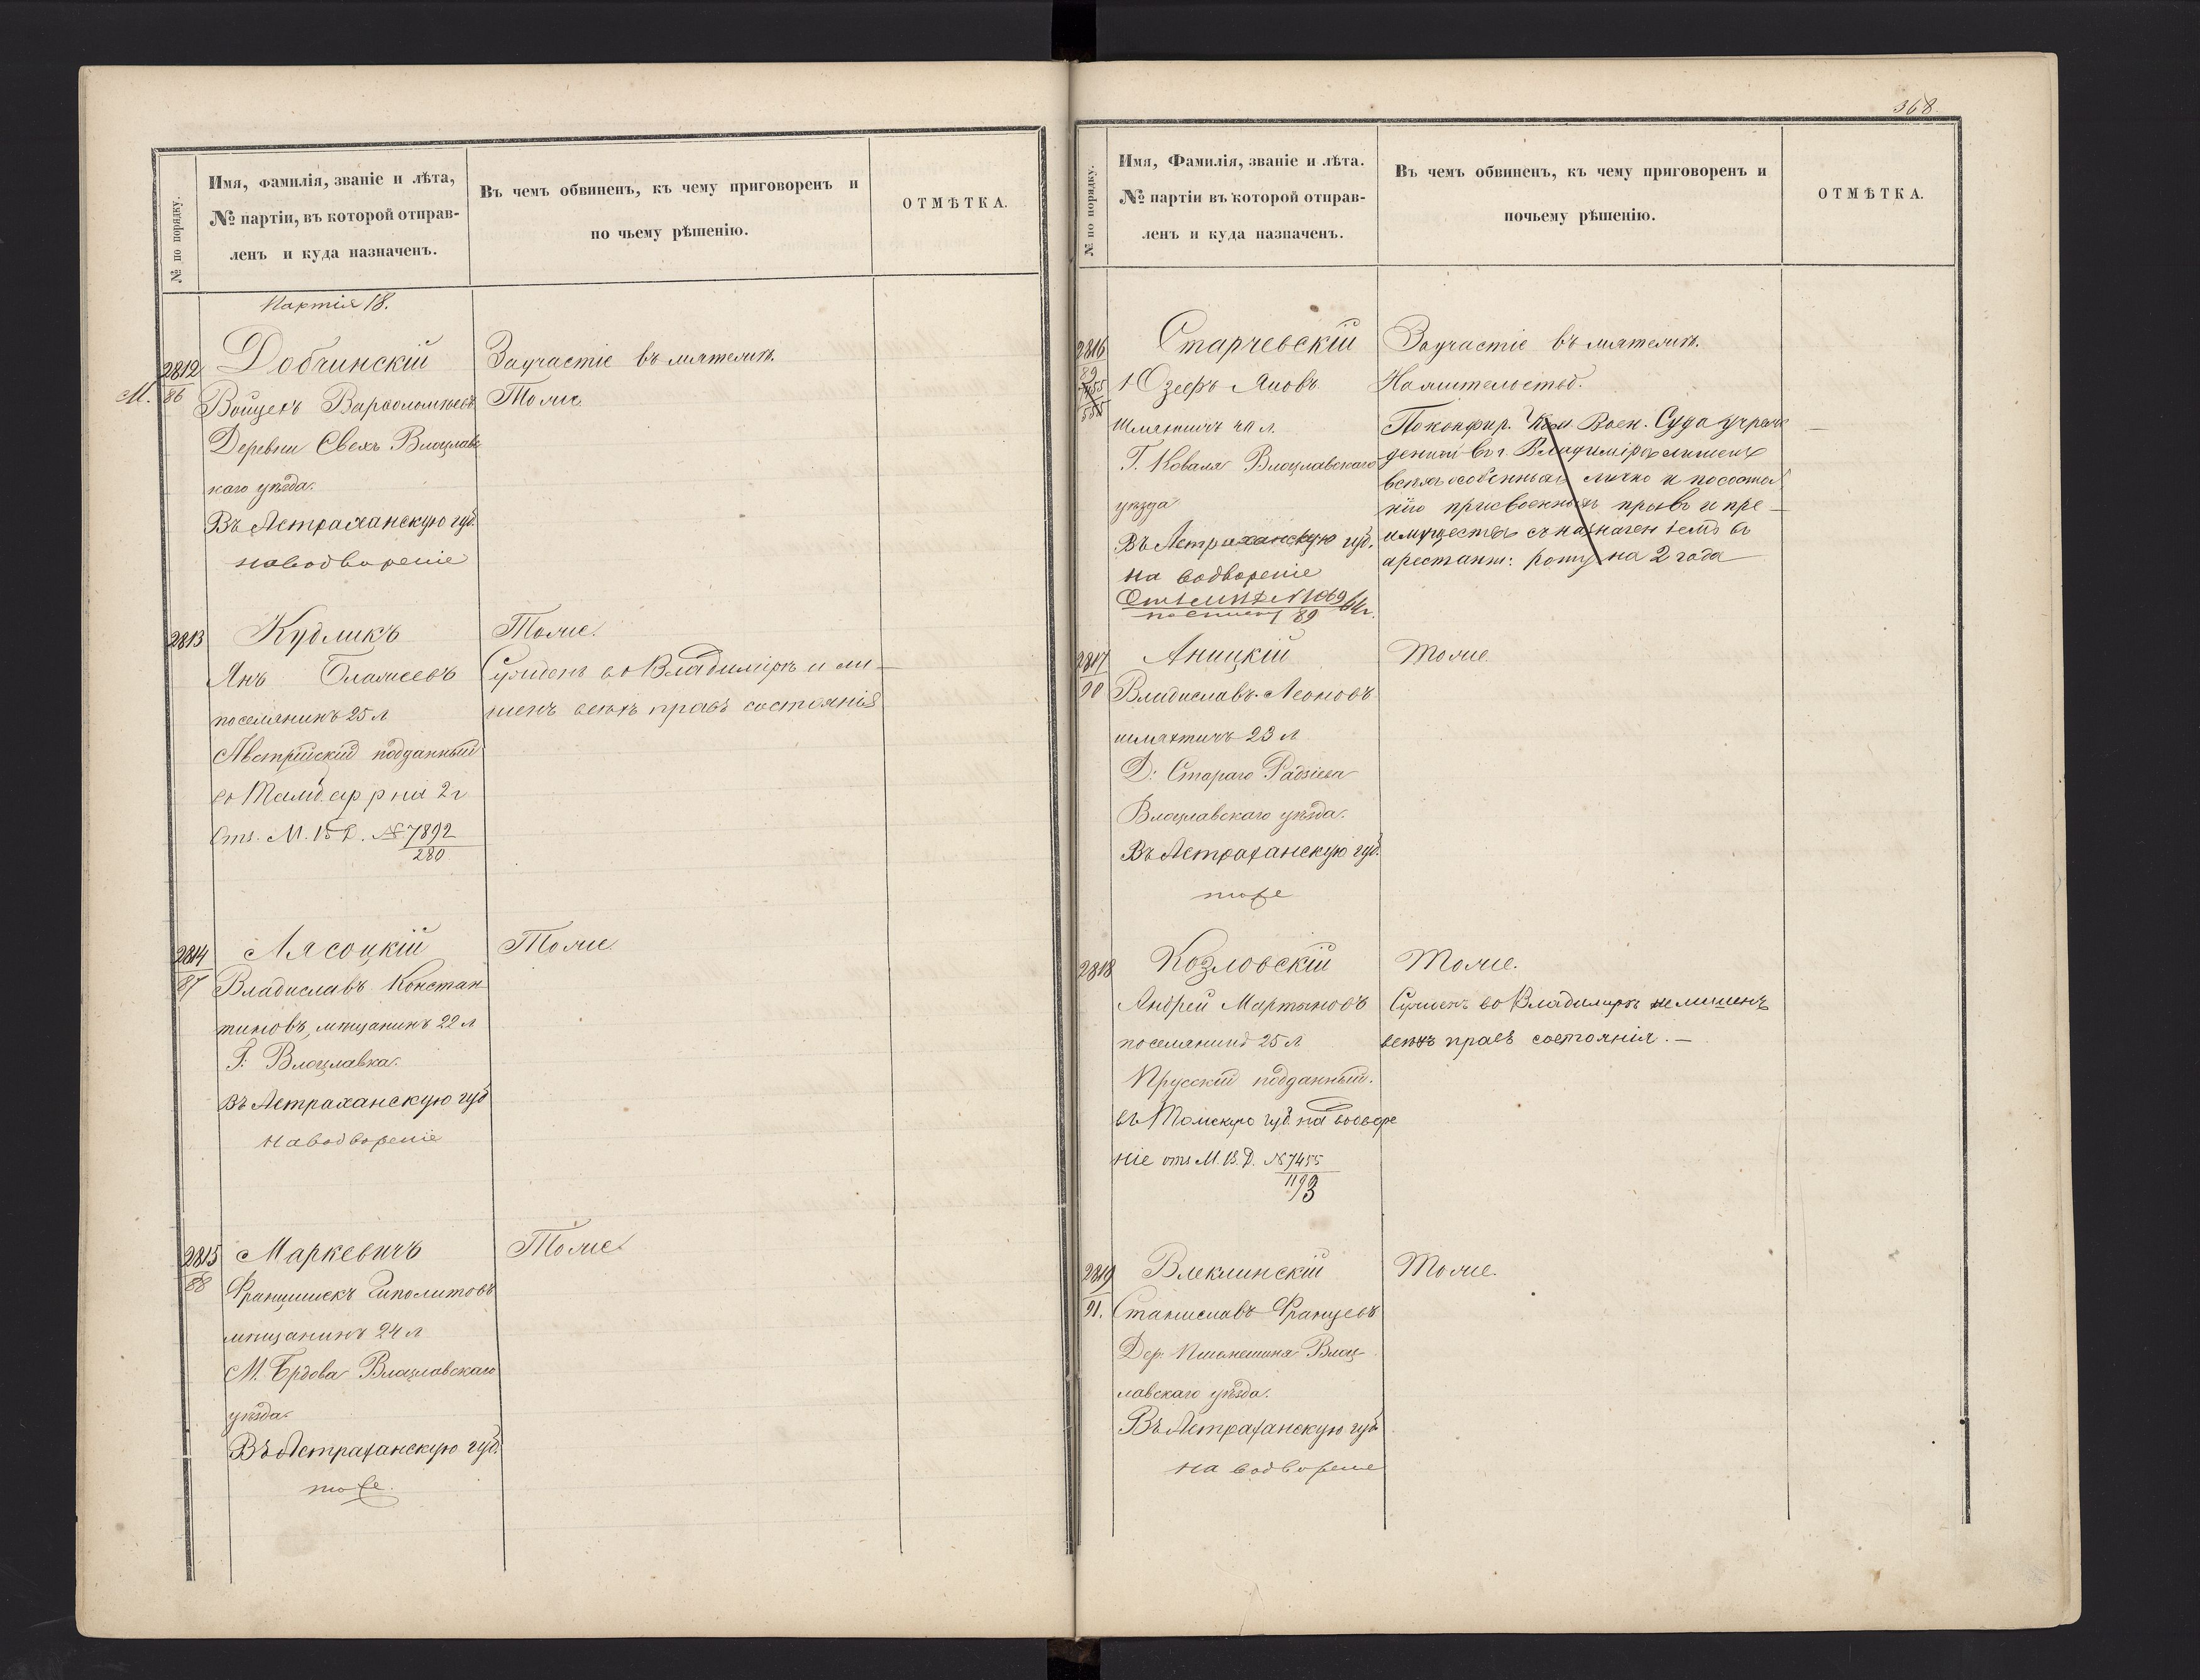 № по порядку.
Имя, фамилія, званіе и лѣта,
№ партіи, въ которой отправ-
ленъ и куда назначенъ.
Въ чемъ обвиненъ, къ чему приговоренъ и
по чьему рѣшенію.
ОТМѢТКА.
Партія 18.
2812
М. 86
Добчинскій
Войцехъ Варѳоломѣевъ
Деревни Влоцлавс
каго уѣзда.
Въ Астраханскую губ.
на водвореніе
За участіе въ мятежѣ.
Тоже.
2813
Кудликъ
Янъ
поселянинъ 25 л
Австрійскій подданный
на 2 г
Отз. М. В. Д. № 7892
280
Тоже.
Сужденъ во Владимірѣ и ли-
шенъ всѣхъ правъ состоянія
2814
87
Лясоцкій
Владиславъ Констан
тиновъ, мѣщанинъ 22 л
Г. Влоцлавка.
Въ Астраханскую губ
на водвореніе
Тоже.
2815
88
Маркевичъ
Францишекъ Гиполитовъ
мѣщанинъ 24 л
М. Брдова Влоцлавскаго
уѣзда.
Въ Астраханскую губ.
тоже.
Тоже.
368.
№ по порядку.
Имя, Фамилія, званіе и лѣта.
№ партіи въ которой отправ-
ленъ и куда назначенъ.
Въ чемъ обвиненъ, къ чему приговоренъ и
почьему рѣшенію.
ОТМѢТКА.
2816
89
Старчевскій
Юзефъ Яновъ
шляхтичъ л.
Г. Коваля Влоцлавскаго
уѣзда
Въ Астраханскую губ.
на водвореніе
За участіе въ мятежѣ.
По конфир. Воен. Суда учреж
деннаго въ г. Владимірѣ лишенъ
всѣхъ особенныхъ лично и по состоя
нію присвоенныхъ правъ и пре-
имуществъ съ назначеніемъ въ
арестант: роты на 2 года
2817
90
Аницкій
Владиславъ Леоновъ
шляхтичъ 23 л
Д: Стараго Радзіева
Влоцлавскаго уѣзда.
Въ Астраханскую губ.
тоже
Тоже.
2818
Козловскій
Андрей Мартыновъ
поселянинъ 25 л
Прусскій подданный.
въ Томскую губ. на водворе
ніе отз М. В. Д. № 7455
1193
Тоже.
Сужденъ во Владимірѣ лишенъ
всѣхъ правъ состоянія. —
2819
91.
Влеклинскій
Станиславъ Францевъ
Дер. Влоц-
лавскаго уѣзда.
Въ Астраханскую губ
на водвореніе
Тоже.